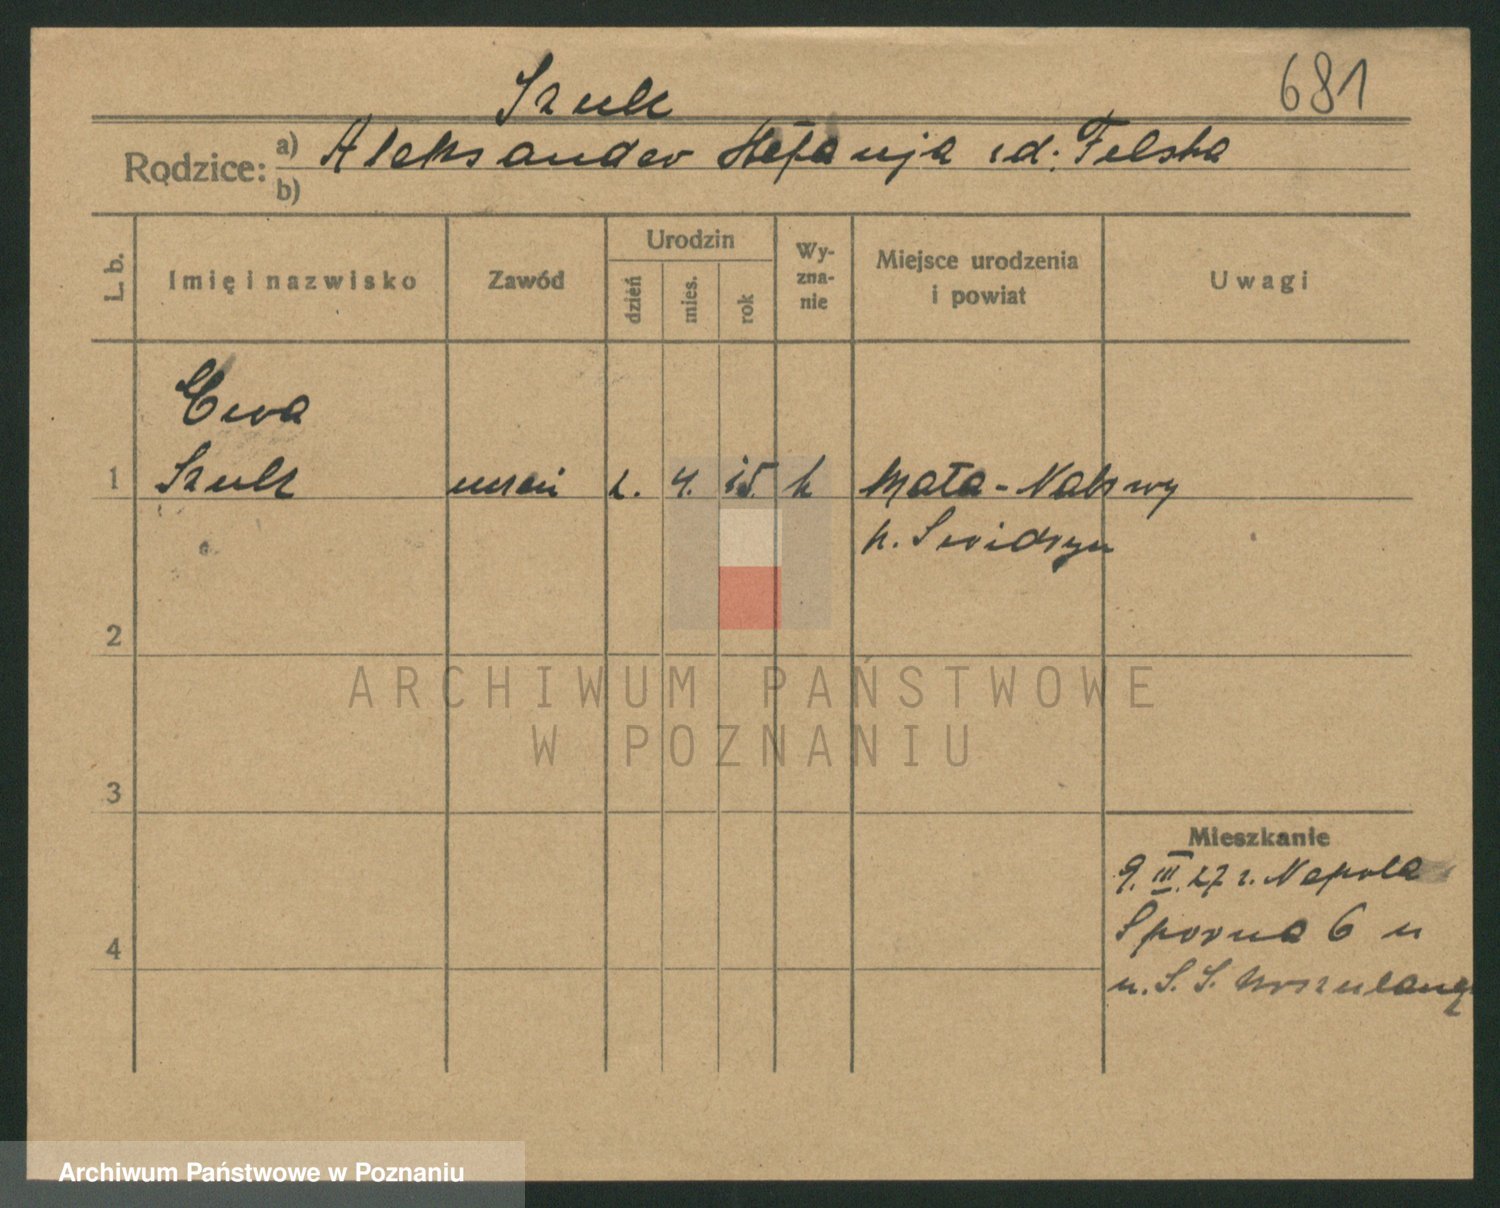 681
Szulc
Rodzice: a) Aleksander Stefanja z d. Felska
b)
L. b.
Imię i nazwisko
Zawód
Urodzin
dzień
mies.
rok
Wy-
zna-
nie
Miejsce urodzenia
i powiat
Uwagi
Ewa
1 Szulc uczeń 2. 4. 15. k Mała-
p.
2
3
4
Mieszkanie
9. III. 27 r.
Sporna 6 u
u. S. S.
ARCHIWUM PAŃSTWOWE
W POZNANIU
Archiwum Państwowe w Poznaniu